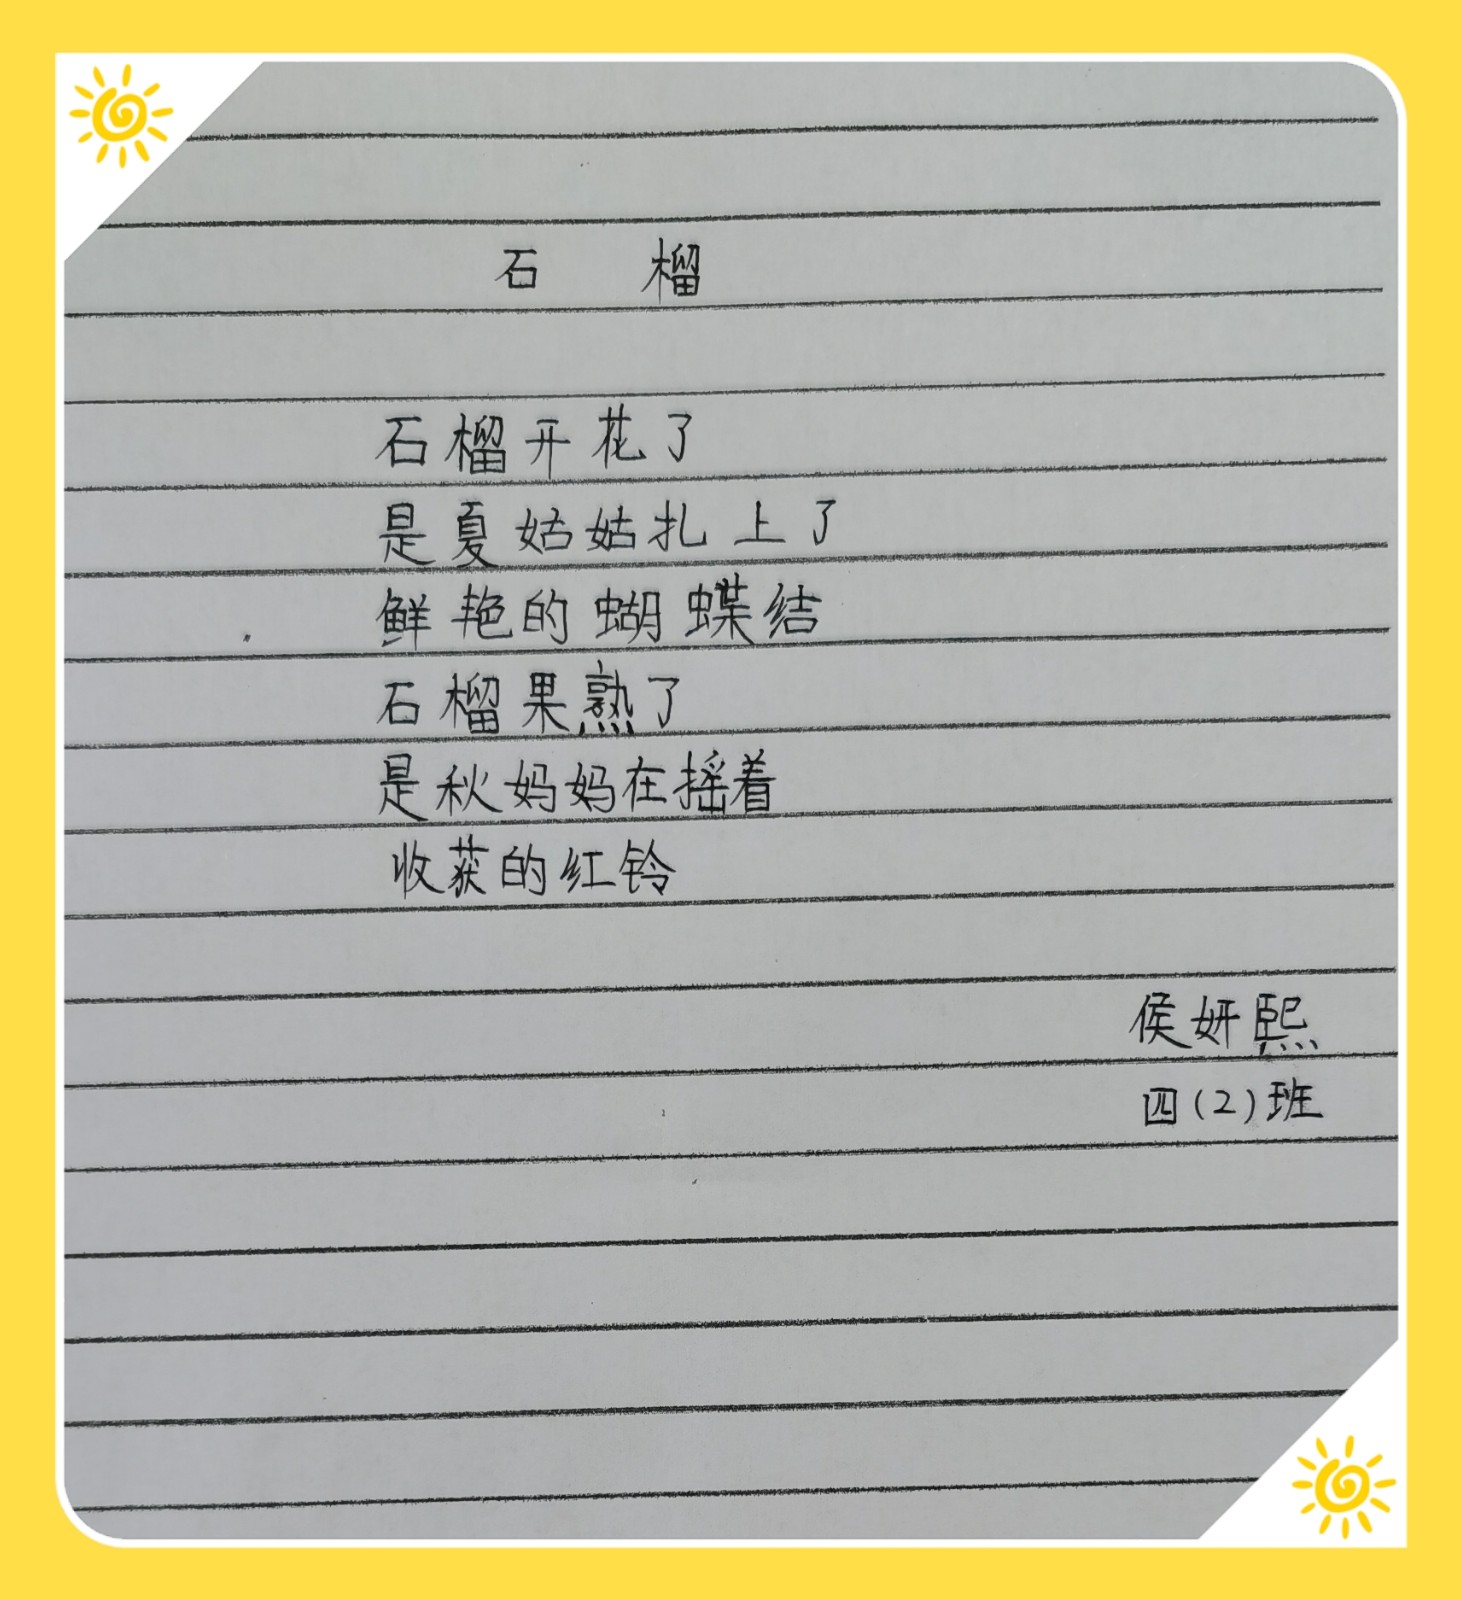 石 榴
石榴开花了
是夏姑姑扎上了
鲜艳的蝴蝶结
石榴果熟了
是秋妈妈在摇着
收获的红铃
侯妍熙
四(2)班